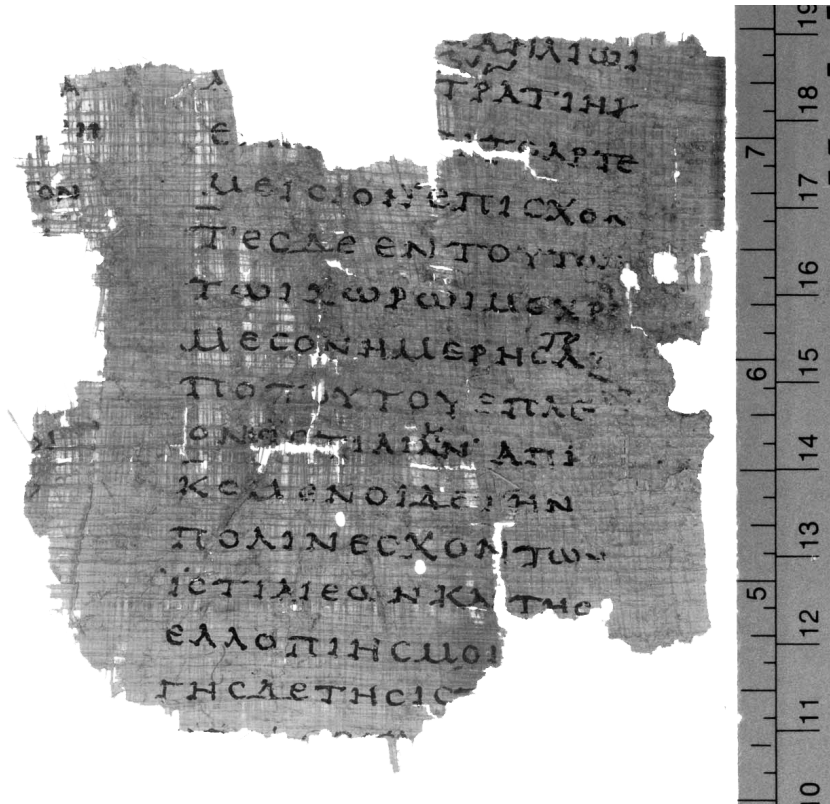 ΑΗΛΙΩΙ
ΤΡΑΤΙΗ
ΤΟΑΡΤΕ
ΜΕΙCΙΟΝ ΕΠΙCΧΟΝ
ΤΕCΔΕ ΕΝΤΟΥΤΩ
ΤΩΙΧΩΡΩΙΜΕΧΡ
ΜΕCΟΝΗΜΕΡΗC ΤΟ Α
ΠΟΤΟΥΤΟΥΕΠΛΕ
ΟΝΕCΙCΤΙΑΙΗΝ ΑΠΙ
ΚΟΜΕΝΟΙΔΕΤΗΝ
ΠΟΛΙΝΕCΧΟΝΤΩΝ
ΙCΤΙΑΙΕΩΝΚΑΙΤΗC
ΕΛΛΟΠΙΗCΜΟΙ
ΓΗCΔΕΤΗCΙC
19
18
7
17
16
6
15
14
13
5
12
11
10